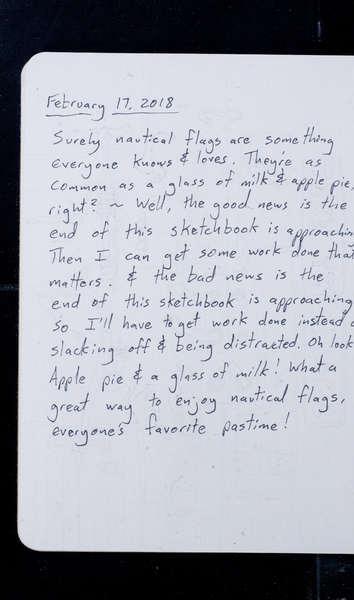 February 17, 2018
Surely nautical flags are something
everyone knows & loves. They're as
common as a glass of milk & apple pie,
right? ~ Well, the good news is the
end of this sketchbook is approachin
Then I can get some work done that
matters. & the bad news is the
end of this sketchbook is approaching
so I'll have to get work done instead o
slacking off & being distracted. Oh look
Apple pie & a glass of milk! What a
great way to enjoy nautical flags,
everyone's favorite pastime!